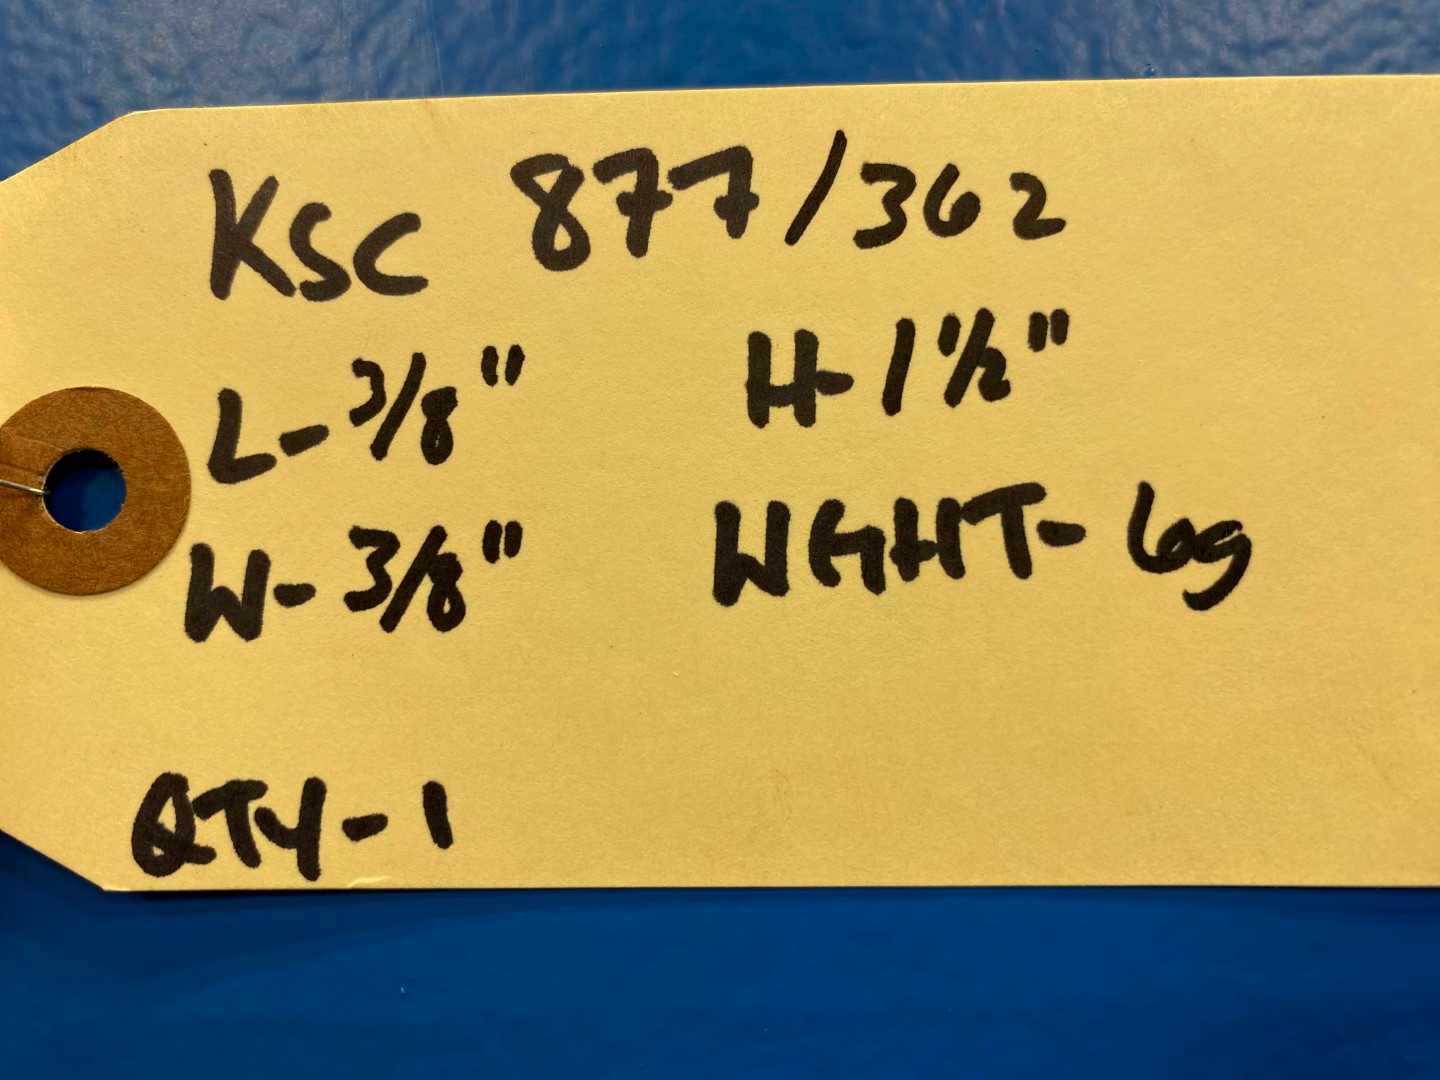 KSC 877/362
L-3/8" H-1 1/2"
W-3/8" WGHT-6g
QTY-1